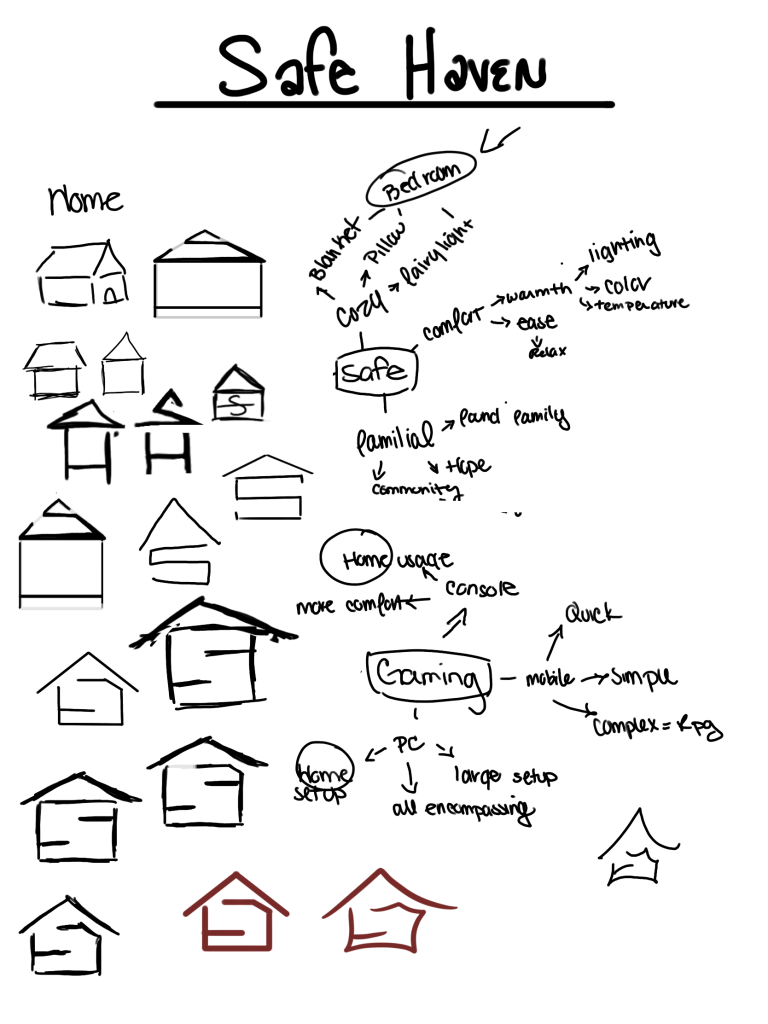 Safe Haven
Home
Bedroom
Blanket
Pillow
fairylight
Cozy
comfort
warmth
lighting
color
temperature
ease
relax
Safe
familial
found family
Hope
community
Home usage
console
more comfort
Quick
Gaming
mobile
Simple
complex = Rpg
PC
Home
setup
large setup
all encompassing
S